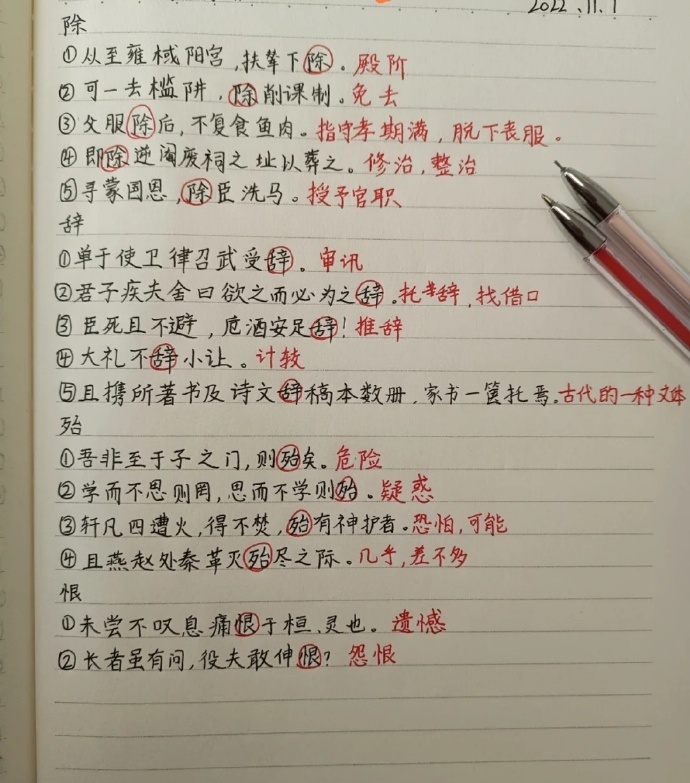 2022.11.1
除
①从至雍棫阳宫,扶辇下除。殿阶
②可一去槛阱,除削课制。免去
③父服除后,不复食鱼肉。指守孝期满,脱下丧服。
④即除逆阉废祠之址以葬之。修治,整治
⑤寻蒙国恩,除臣洗马。授予官职
辞
①单于使卫律召武受辞。审讯
②君子疾夫舍曰欲之而必为之辞。托辞,找借口
③臣死且不避,卮酒安足辞!推辞
④大礼不辞小让。计较
⑤且携所著书及诗文辞稿本数册,家书一箧托焉。古代的一种文体
殆
①吾非至于子之门,则殆矣。危险
②学而不思则罔,思而不学则殆。疑惑
③轩凡四遭火,得不焚,殆有神护者。恐怕,可能
④且燕赵处秦革灭殆尽之际。几乎,差不多
恨
①未尝不叹息痛恨于桓、灵也。遗憾
②长者虽有问,役夫敢伸恨?怨恨